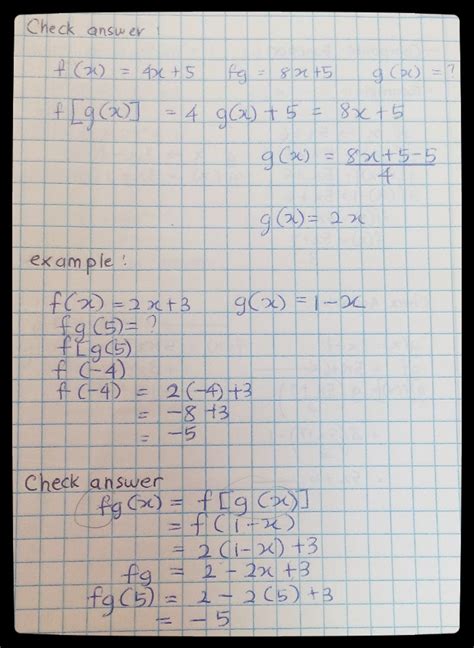 Check answer :
f(x) = 4x+5 fg = 8x+5 g(x) = ?
f[g(x)] = 4 g(x) + 5 = 8x + 5
g(x) = 8x+5-5
4
g(x) = 2x
example :
f(x) = 2x+3 g(x) = 1-x
fg(5) = ?
f[g(5)
f(-4)
f(-4) = 2(-4)+3
= -8 +3
= -5
Check answer
fg(x) = f[g(x)]
= f(1-x)
= 2(1-x)+3
fg = 2 - 2x + 3
fg(5) = 2 - 2(5) + 3
= -5